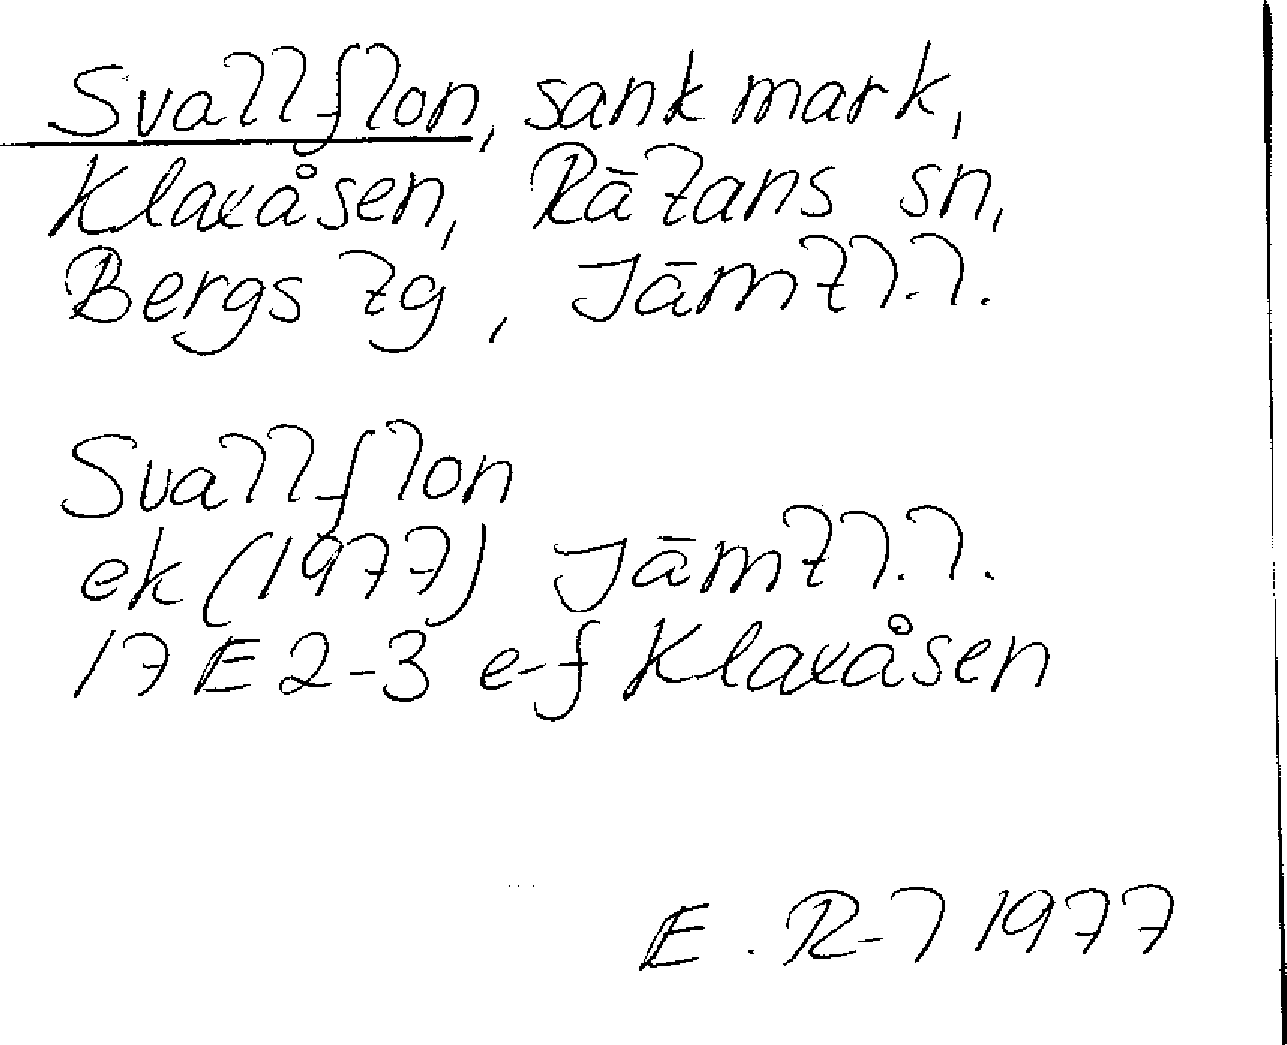 Svallflon, sank mark,
Klaxåsen, Rätans sn,
Bergs tg, Jämtl.l.
Svallflon
ek (1977) Jämtl.l.
17E2-3 e-f Klaxåsen
E. R-l 1977